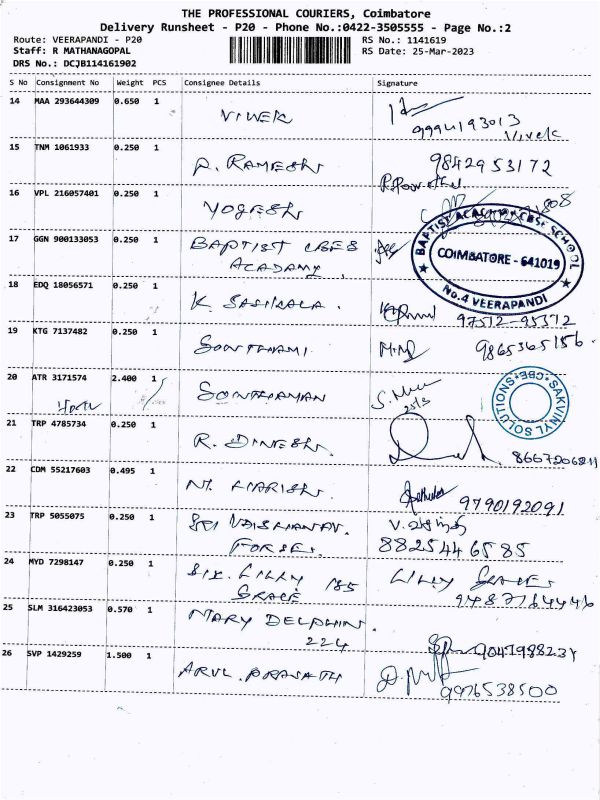 THE PROFESSIONAL COURIERS, Coimbatore
Delivery Runsheet - P20 - Phone No.:0422-3505555 - Page No.:2
Route: VEERAPANDI - P20 RS No.: 1141619
Staff: R MATHANAGOPAL RS Date: 25-Mar-2023
DRS No.: DCJB114161902
S No Consignment No Weight PCS Consignee Details Signature
14 MAA 293644309 0.650 1 VIVEK
9994193013
Vivek
15 TNM 1061933 0.250 1 P. RAMESH 9842953172
16 VPL 216057401 0.250 1 YOGESH
17 GGN 900133053 0.250 1 BAPTIST CBES
ACADAMY.
BAPTIST ACADEMY CBSE SCHOOL
COIMBATORE - 641019
No.4 VEERAPANDI
18 EDQ 18056571 0.250 1 K SASIKALA. 97512-95372
19 KTG 7137482 0.250 1 9865365156.
20 ATR 3171574 2.400 1 25/3
SAKVINYL SOLUTIONS CBE
21 TRP 4785734 0.250 1 R. DINESH. 8667206211
22 CDM 55217603 0.495 1 M. HARISH. 9790192091
23 TRP 5055075 0.250 1 SRI VAISHANAV.
FORGE. 8825446585
24 MYD 7298147 0.250 1 SIX. LILLY 185 LILLY GRACE
GRACE 9487164446
25 SLM 316423053 0.570 1 MARY DELPHIN.
224 9041988234
26 SVP 1429259 1.500 1 ARUL PRASATH
9976538500